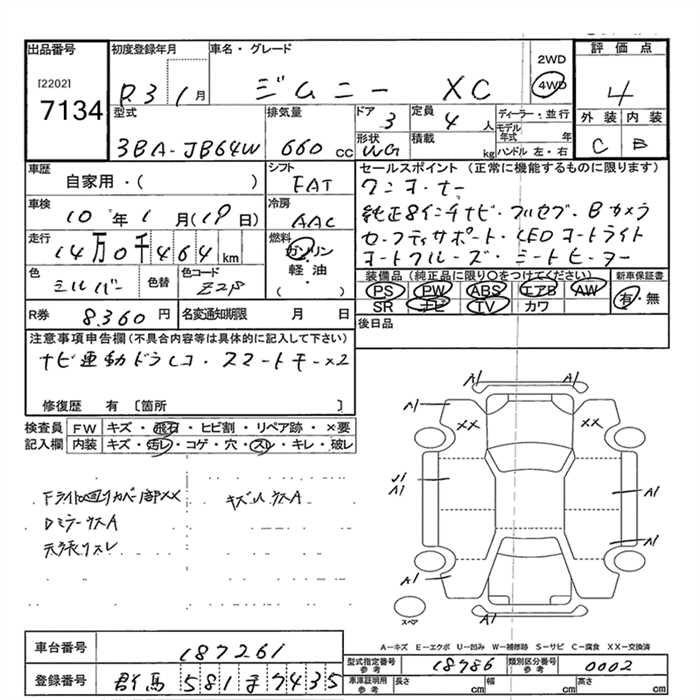 出品番号 初度登録年月 車名・グレード 評価点
[2202]
7134
R3 1月 ジムニー XC 2WD
4WD
4
型式 排気量 ドア 定員 ディーラー・並行 外装 内装
3BA-JB64W 660 cc 3 4 人 モデル年式 年
形状 積載 ハンドル 左・右 C B
WG kg
車歴 シフト セールスポイント (正常に機能するものに限ります)
自家用・( ) FAT ワンオーナー
車検 冷房 純正8インチナビ・フルセグ・Bカメラ
10年1月(19日) AAC セーフティサポート・LEDオートライト
走行 燃料 オートクルーズ・シートヒーター
14万0千464km ガソリン
軽油
( )
色 色替 色コード 装備品 (純正品に限り○をつけてください) 新車保証書
シルバー Z2S PS PW ABS エアB AW 有・無
SR ナビ TV カワ
R券 8,360円 名変通知期限 月 日 後日品
注意事項申告欄(不具合内容等は具体的に記入して下さい)
ナビ連動ドラレコ・スマートキー×2
修復歴 有 [箇所 ]
検査員 FW キズ・飛石・ヒビ割・リペア跡・×要
記入欄 内装 キズ・汚レ・コゲ・穴・スレ・キレ・破レ
A1 A1
A1 XX XX A1
Fライト回りカバー部XX キズU,ウスA
U1
A1 A1
Dミラーウスア
天張りスレ
A1
A1 A1
スペア
A-キズ E-エクボ U-凹み W-補修跡 S-サビ C-腐食 XX-交換済
車台番号 187261
型式指定番号 参考 18786 類別区分番号 参考 0002
登録番号 群馬 581 ま 7435
車庫証明用 参考 長さ cm 幅 cm 高さ cm